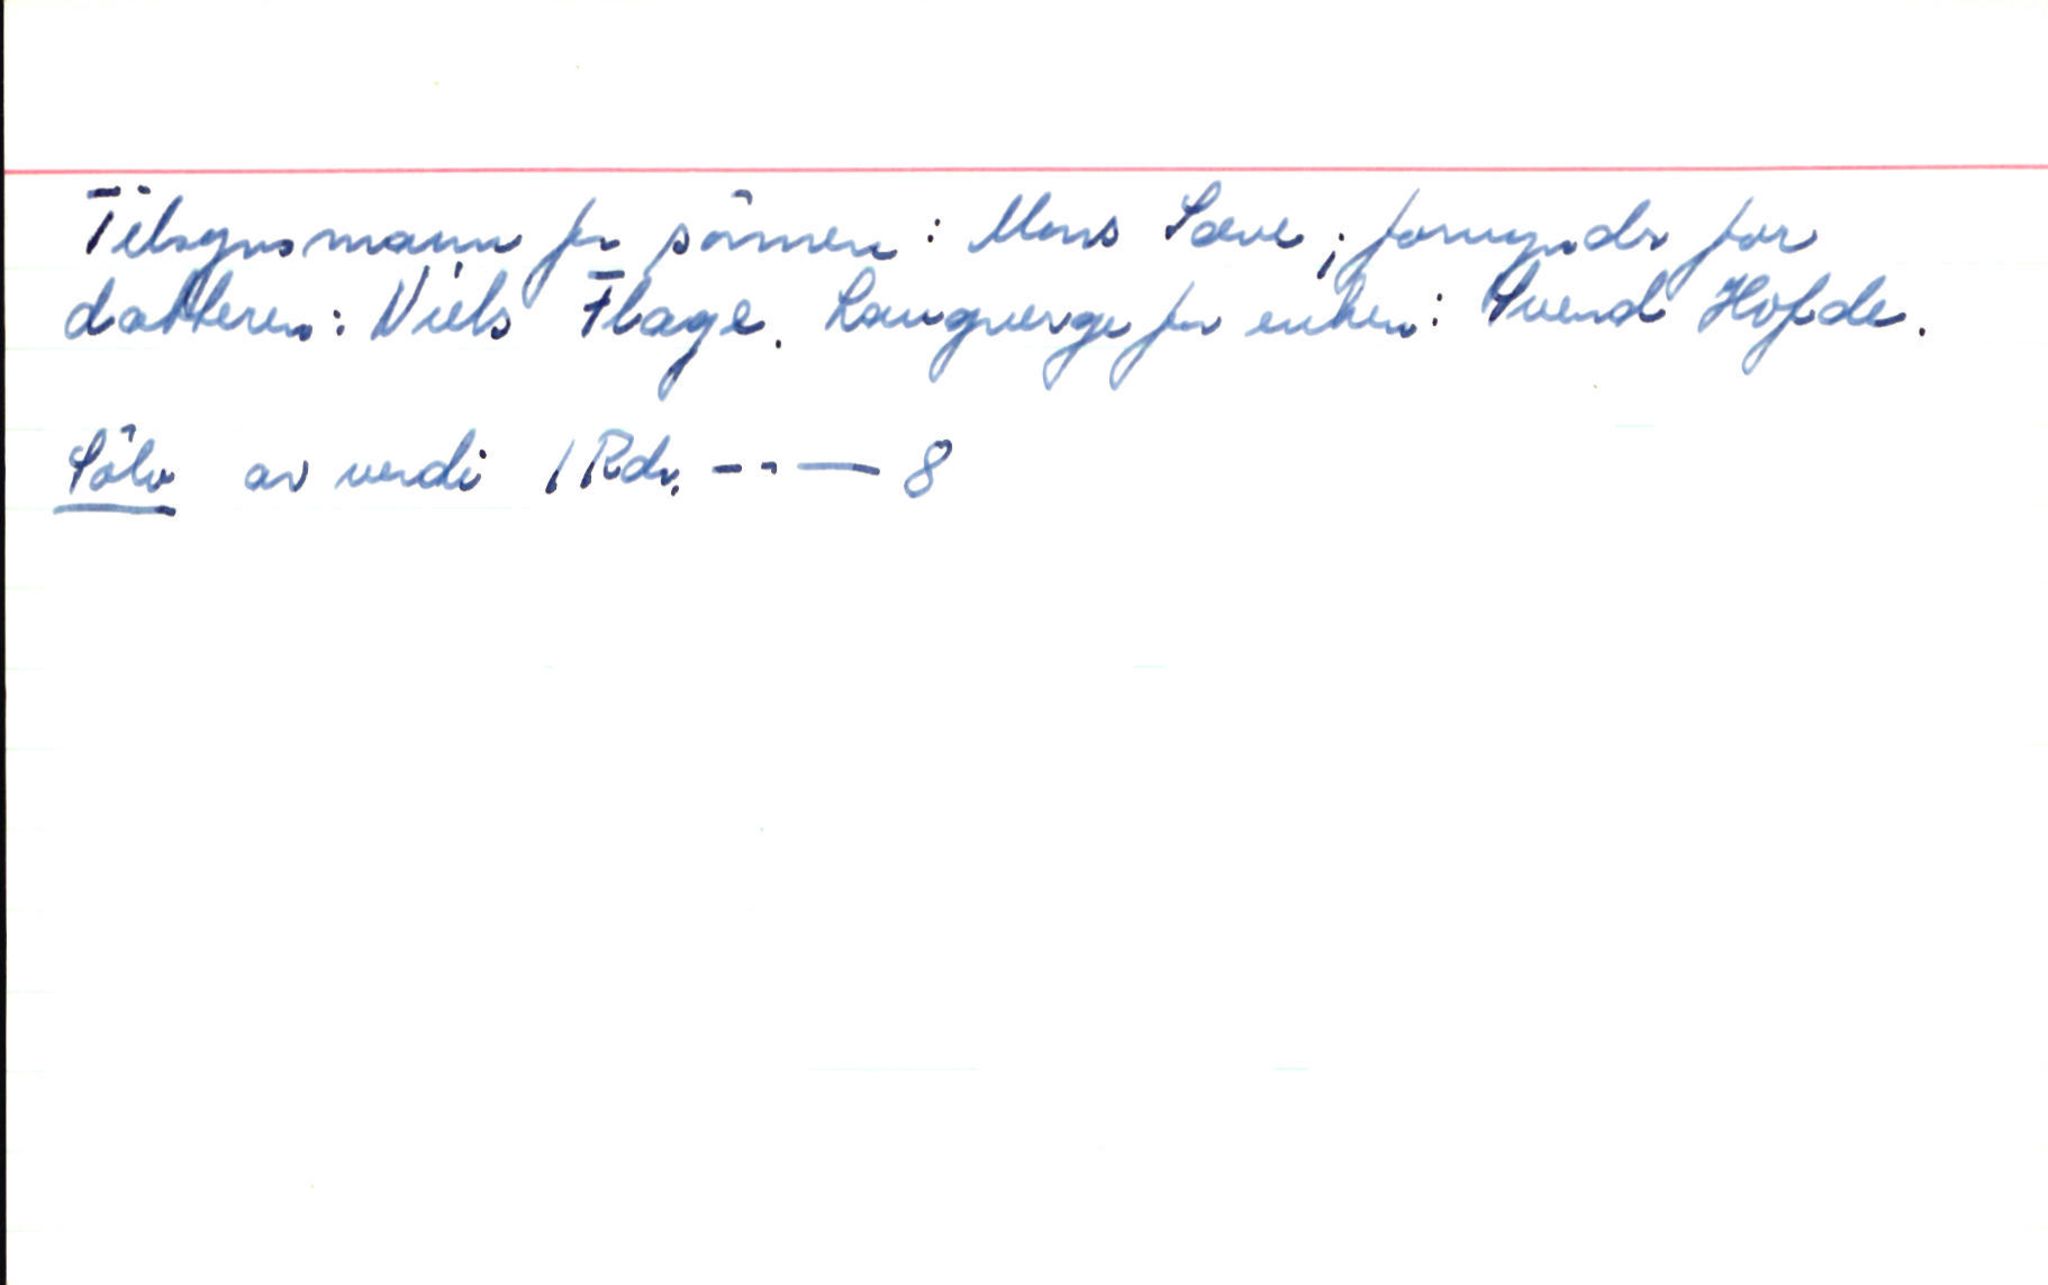 Tilsynsmann for sönnen: Mons Sæve; formynder for
datteren: Niels Flage. Laugverge for enken: Svend Hofde.
Sölv av verdi 1 Rdr. - - — 8